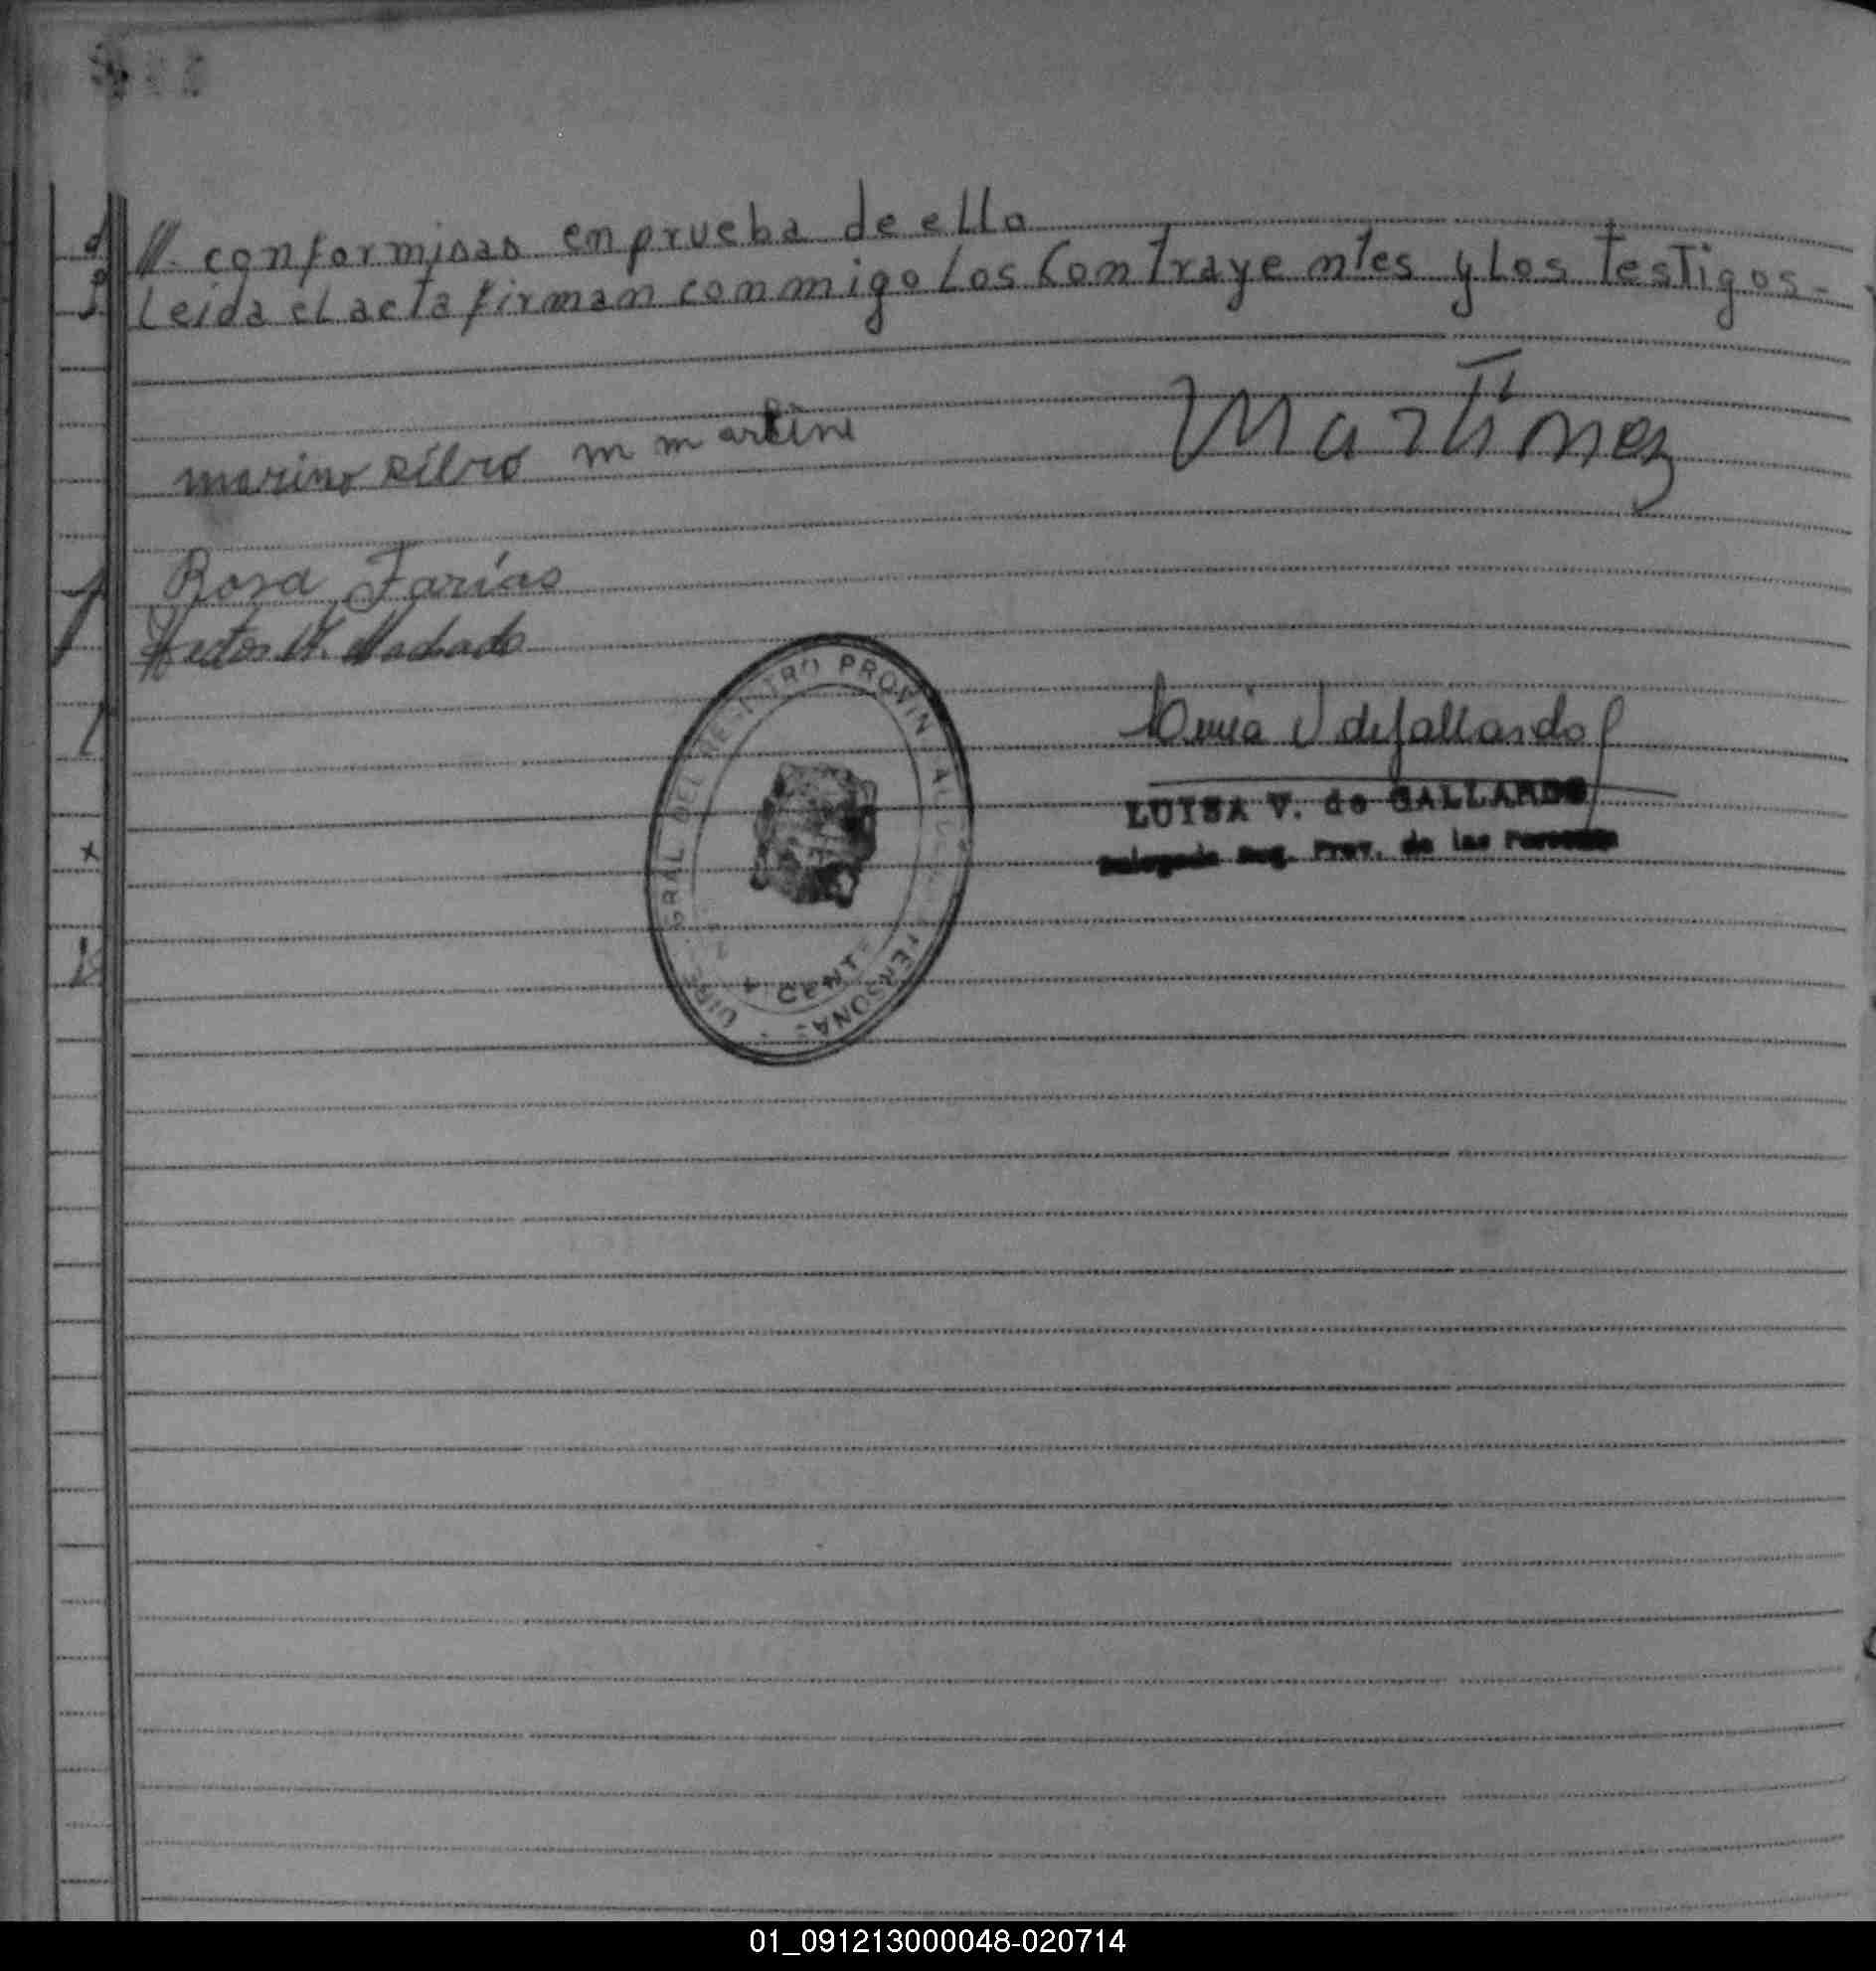 ///- conformidad en prueba de ello
Leida el acta firman conmigo Los Contrayentes y Los Testigos.-
marino silvio m martini
Martinez
Rosa Farías
Hector M. Machado
Luisa V de Gallardo
LUISA V. de GALLARDO
Delegada Reg. Prov. de las Personas
DIREC. GRAL DEL REGISTRO PROVINCIAL DE LAS PERSONAS
01_091213000048-020714